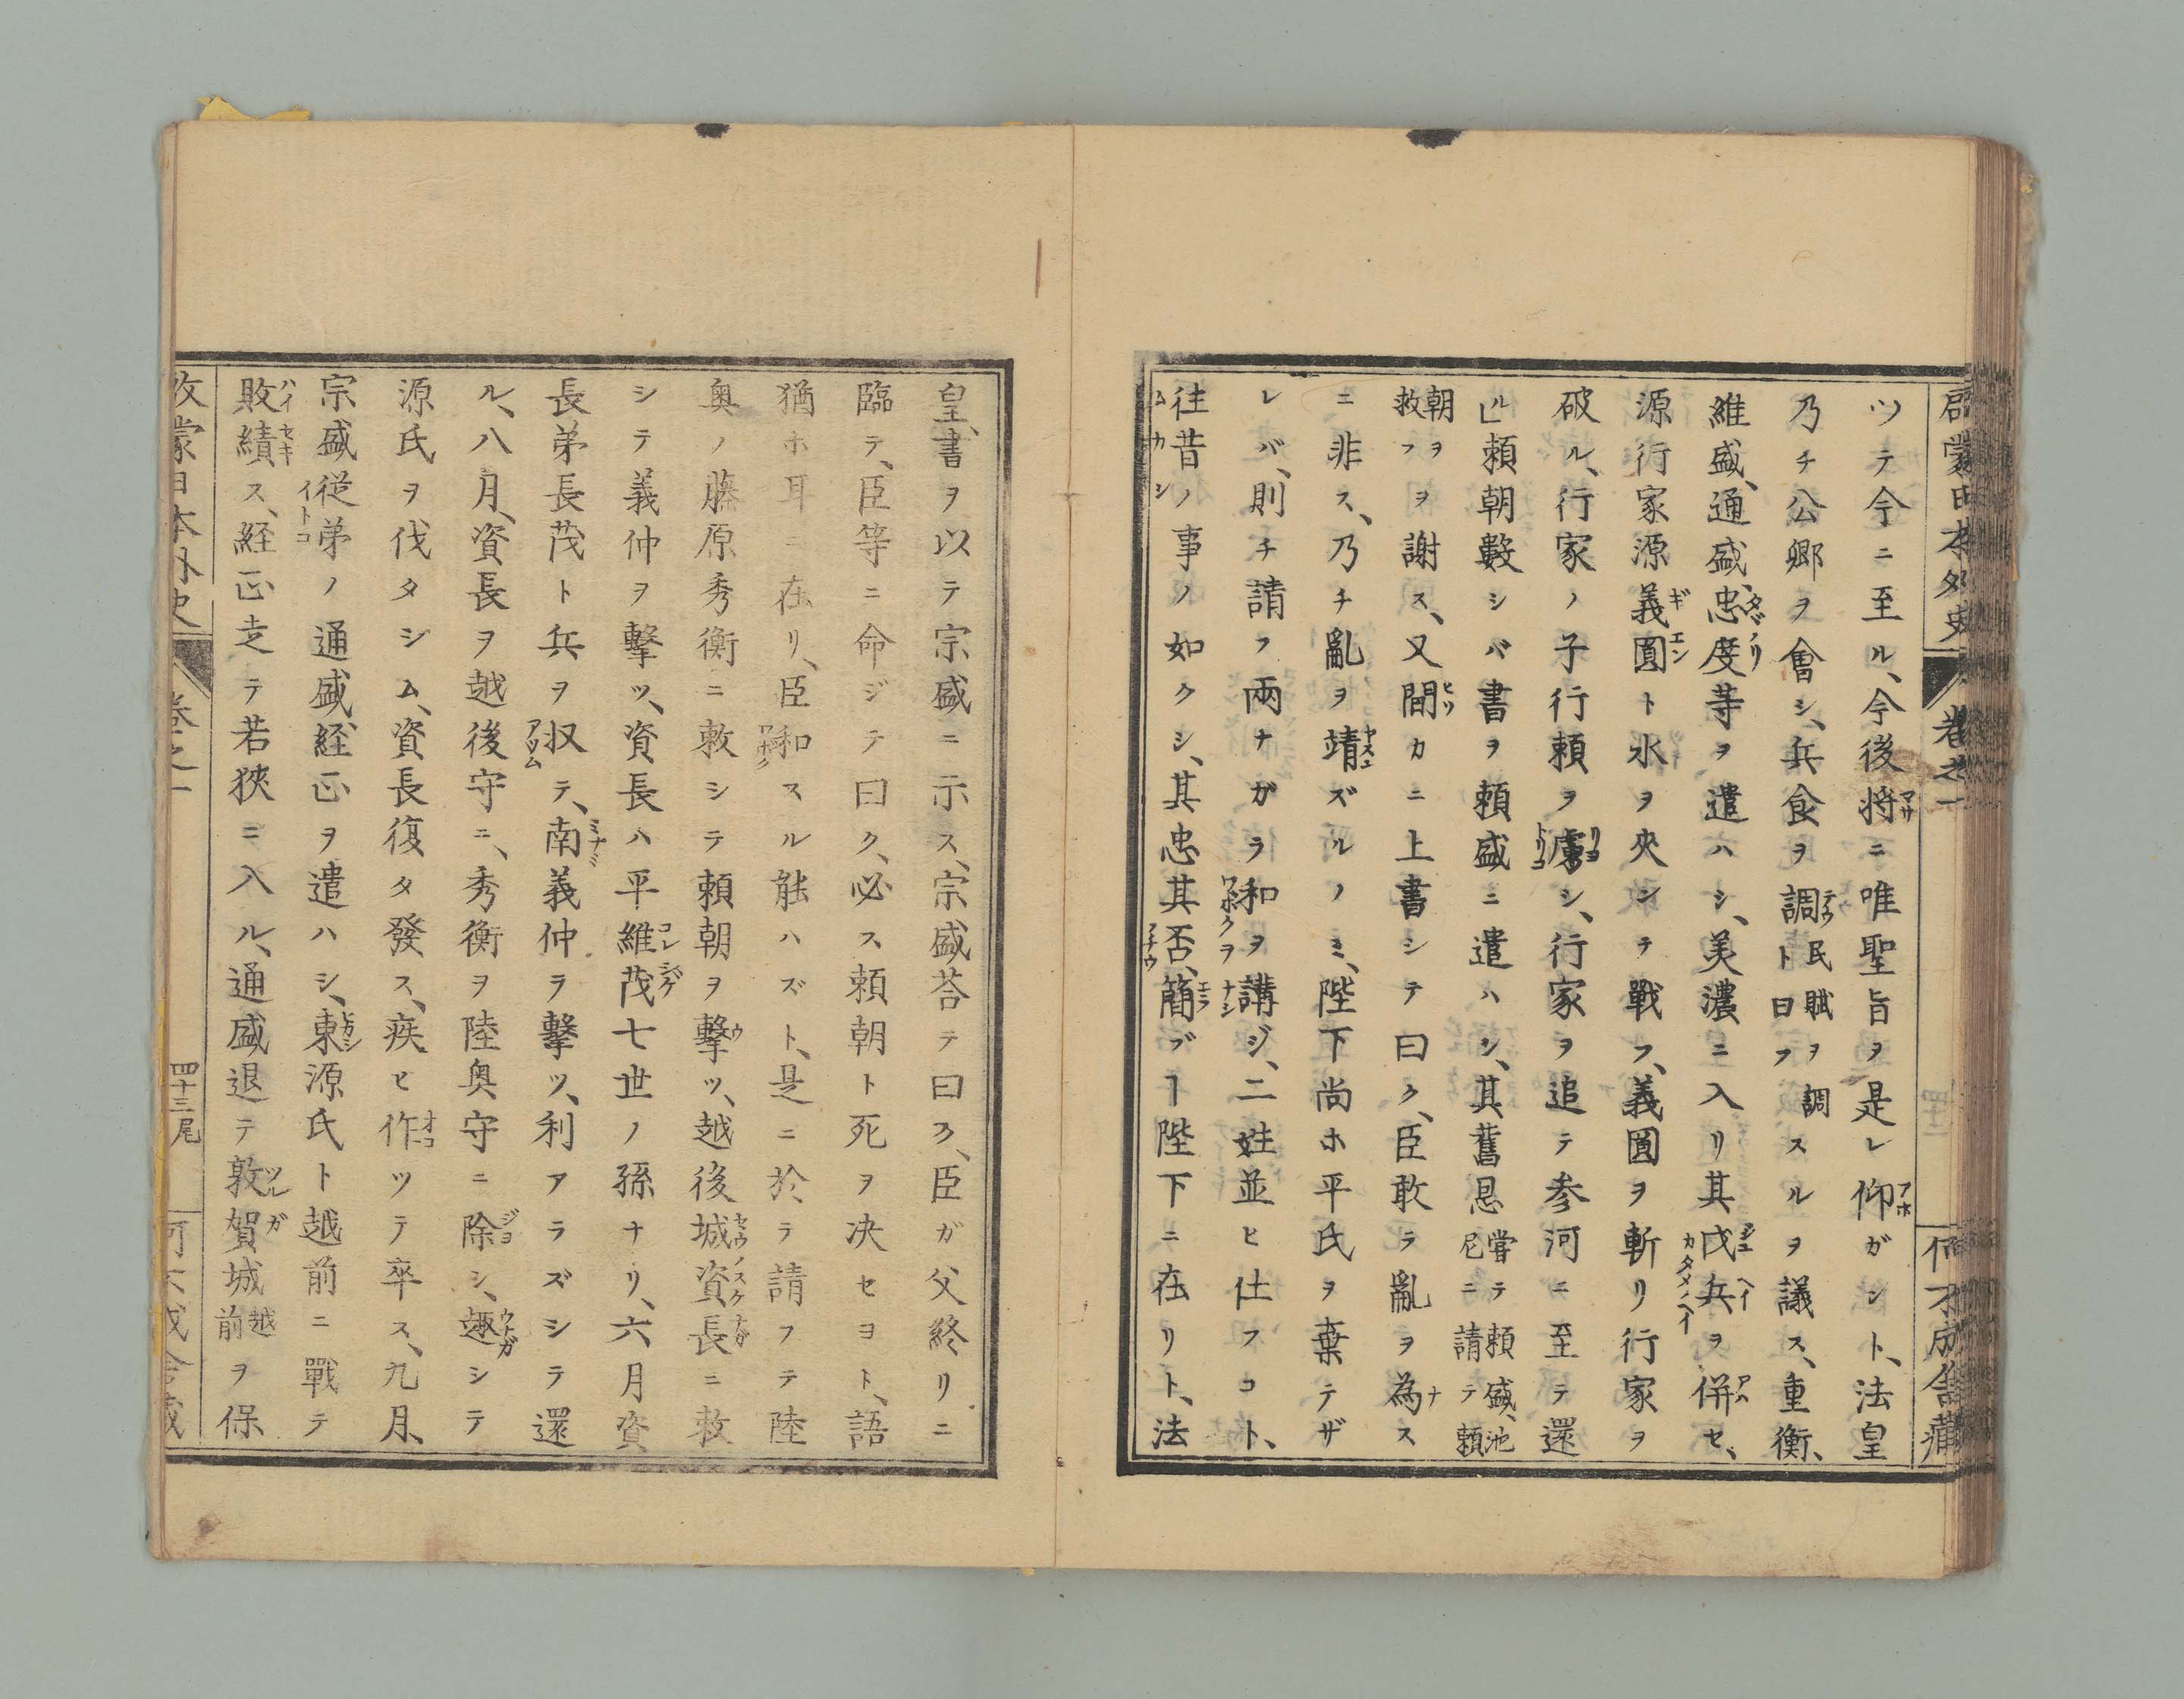 啓蒙日本外史 卷之一
ツテ今ニ至ル、今後将ニ唯聖旨ヲ是レ仰ガントト、法皇
乃チ公郷ヲ會シ、兵食ヲ調民賦ヲ調ト曰フスルヲ議ス、重衡、
維盛、通盛、忠度等ヲ遣ハシ、美濃ニ入リ其戍兵ヲ併セ、
源行家源義圓ト水ヲ夾ンテ戰フ、義圓ヲ斬リ行家ヲ
破ル、行家ノ子行頼ヲ虜シ、行家ヲ追テ参河ニ至テ還
ル」頼朝數シバ書ヲ頼盛ニ遣ハシ、其舊恩嘗テ頼盛、池尼ニ請テ頼
朝ヲ救フヲ謝ス、又間カニ上書シテ曰ク、臣敢ラ亂ヲ為ス
ニ非ス、乃チ亂ヲ靖ズルノミ、陛下尚ホ平氏ヲ棄テザ
レバ、則チ請フ兩ナガラ和ヲ講ジ、二姓並ヒ仕フコト、
往昔ノ事ノ如クシ、其忠其否、簡ブヿ陛下ニ在リト、法
皇、書ヲ以テ宗盛ニ示ス、宗盛荅テ曰ク、臣ガ父終リニ
臨テ、臣等ニ命ジテ曰ク、必ス頼朝ト死ヲ决セヨト、語
猶ホ耳ニ在リ、臣和スル能ハズト、是ニ於ラ請フテ陸
奥ノ藤原秀衡ニ敕シテ頼朝ヲ擊ツ、越後城資長ニ敕
シテ義仲ヲ擊ツ、資長ハ平維茂七世ノ孫ナリ、六月資
長弟長茂ト兵ヲ収テ、南義仲ヲ擊ツ、利アラズシテ還
ル、八月、資長ヲ越後守ニ、秀衡ヲ陸奥守ニ除シ、趣シテ
源氏ヲ伐タシム、資長復タ發ス、疾ヒ作ツテ卒ス、九月、
宗盛従弟ノ通盛経正ヲ遣ハシ、東源氏ト越前ニ戰テ
敗績ス、経正走テ若狹ニ入ル、通盛退テ敦賀城越前ヲ保
卷之一 四十三尾